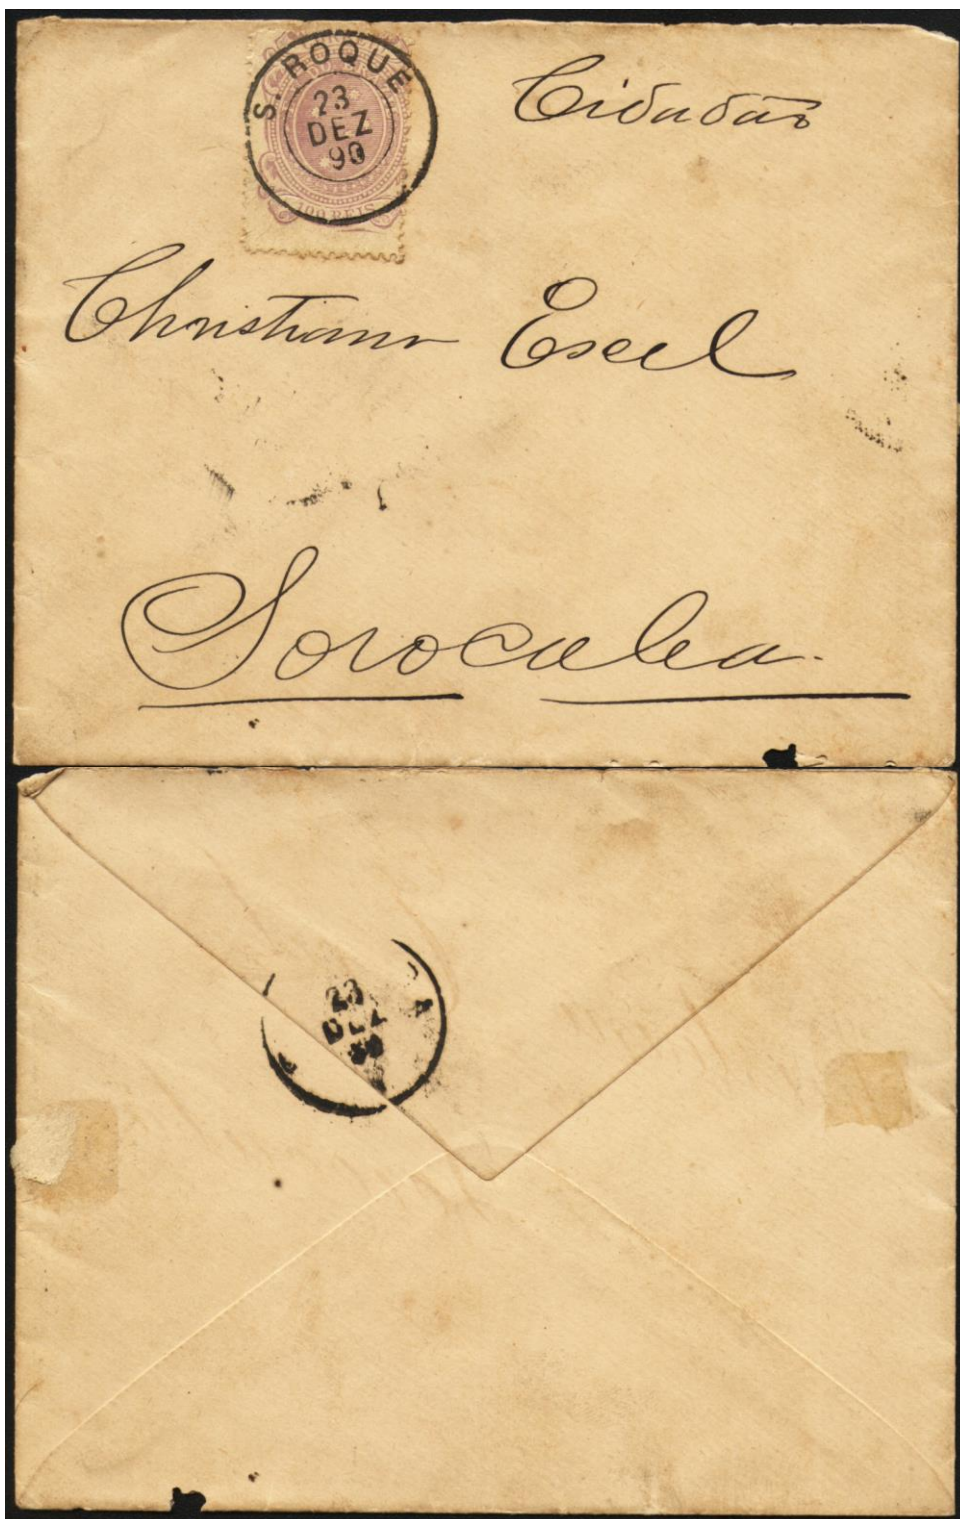 S. ROQUE
23
DEZ
90
100 REIS
Cidadão
Christiano Escel
Sorocaba.
23
DEZ
90